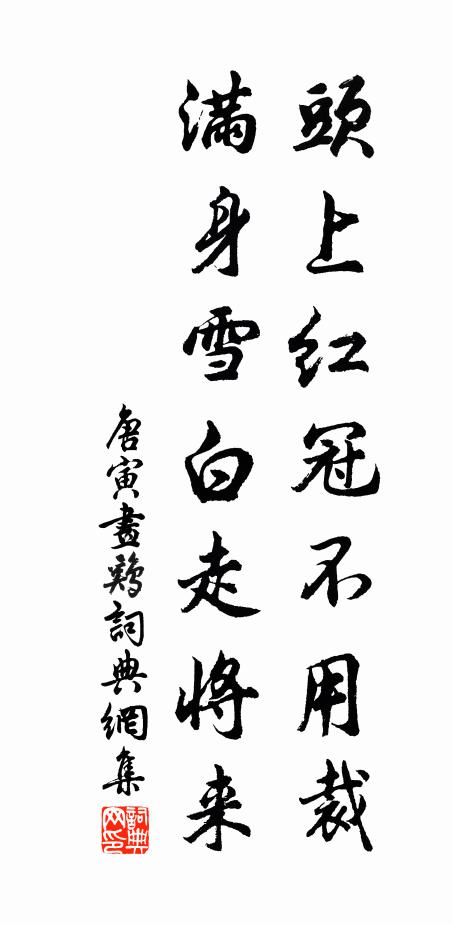 頭上紅冠不用裁
滿身雪白走將来
唐寅畫鷄詞典網集
詞典
网印